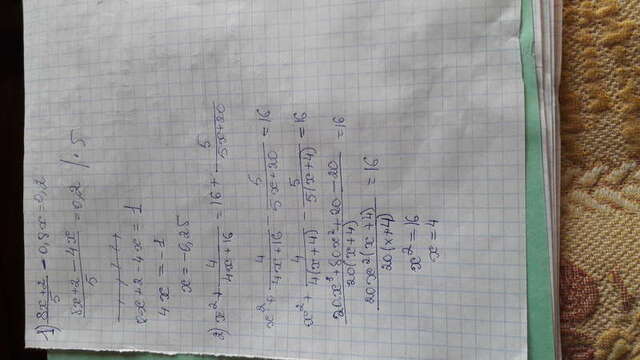 1) (8x+2)/5 - 0,8x = 0,2
(8x+2-4x)/5 = 0,2 /· 5
8x+2-4x = 1
4x = -1
x = -0,25
2) x² + 4/(4x+16) = 16 + 5/(5x+20)
x² + 4/(4x+16) - 5/(5x+20) = 16
x² + 4/(4(x+4)) - 5/(5(x+4)) = 16
(20x³+80x²+20-20)/(20(x+4)) = 16
(20x²(x+4))/(20(x+4)) = 16
x² = 16
x = 4